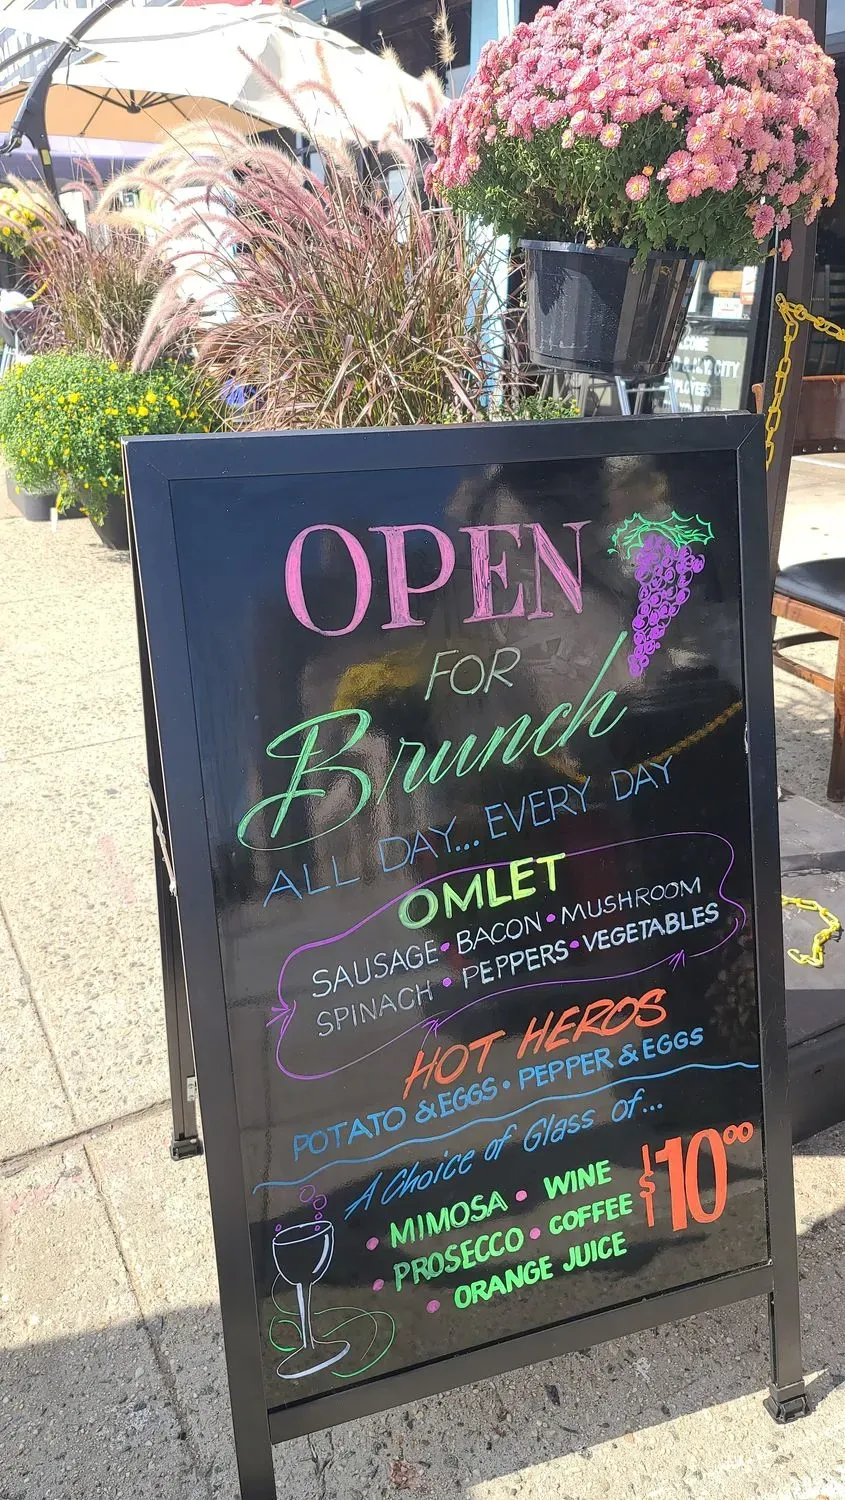 OPEN
FOR
Brunch
ALL DAY... EVERY DAY
OMLET
SAUSAGE • BACON • MUSHROOM
SPINACH • PEPPERS • VEGETABLES
HOT HEROS
POTATO & EGGS • PEPPER & EGGS
A Choice of Glass of...
• MIMOSA • WINE
• PROSECCO • COFFEE
• ORANGE JUICE
$10⁰⁰
CITY